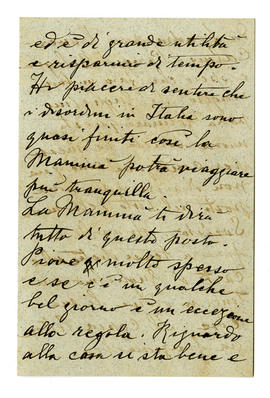 ed è di grande utilità
e risparmio di tempo.
Ho piacere di sentire che
i disordini in Italia sono
quasi finiti così la
Mamma potrà viaggiare
più tranquilla.
La Mamma ti dirà
tutto di questo posto.
Piove molto spesso
e se c'è un qualche
bel giorno è un eccezione
alla regola. Riguardo
alla casa si sta bene e